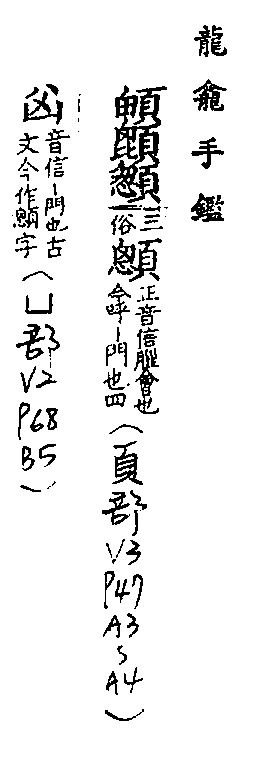 龍龕手鑑
三俗顖正音信腦會也今呼丨門也四(頁部V3P47A3~A4)
音信丨門也古文今作顖字(凵部V2P68B5)